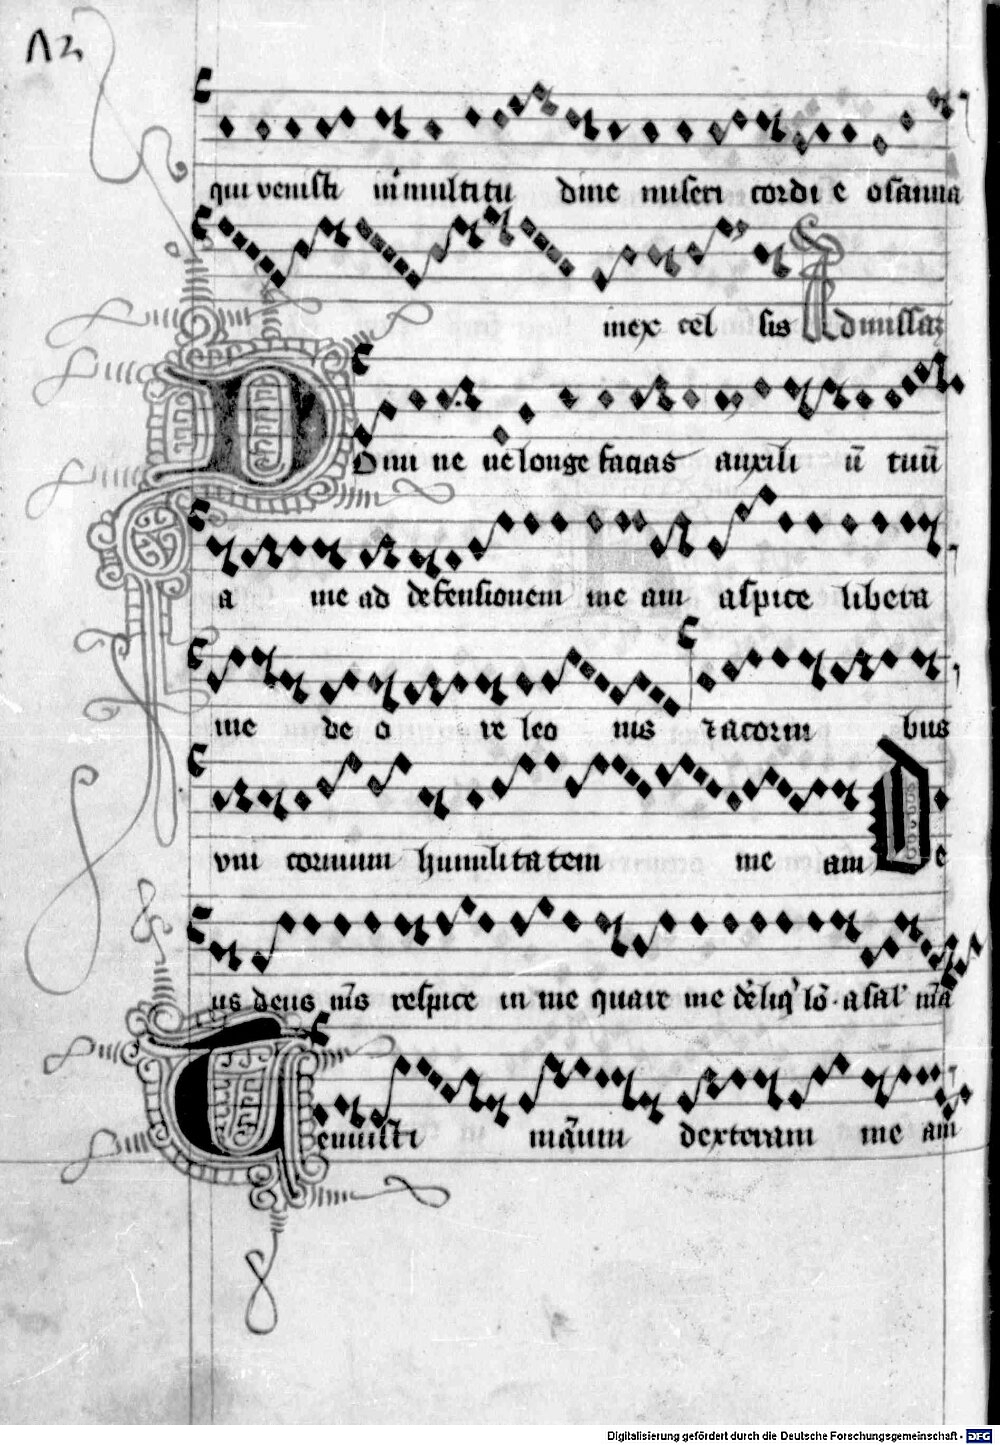 12
qui venisti in multitu dine miseri cordi e osanna
inex cel sis Ad missaz
Domi ne ne longe facias auxili ū tuū
a me ad defensionem me am aspice libera
me de o re leo nis ⁊ acorni bus
vni cornium humilita tem me am De
us deus m̄s respice in me quare me dēliq' lō. a sal' m̄a
Tenuisti mānum dexteram me am
Digitalisierung gefördert durch die Deutsche Forschungsgemeinschaft - DFG